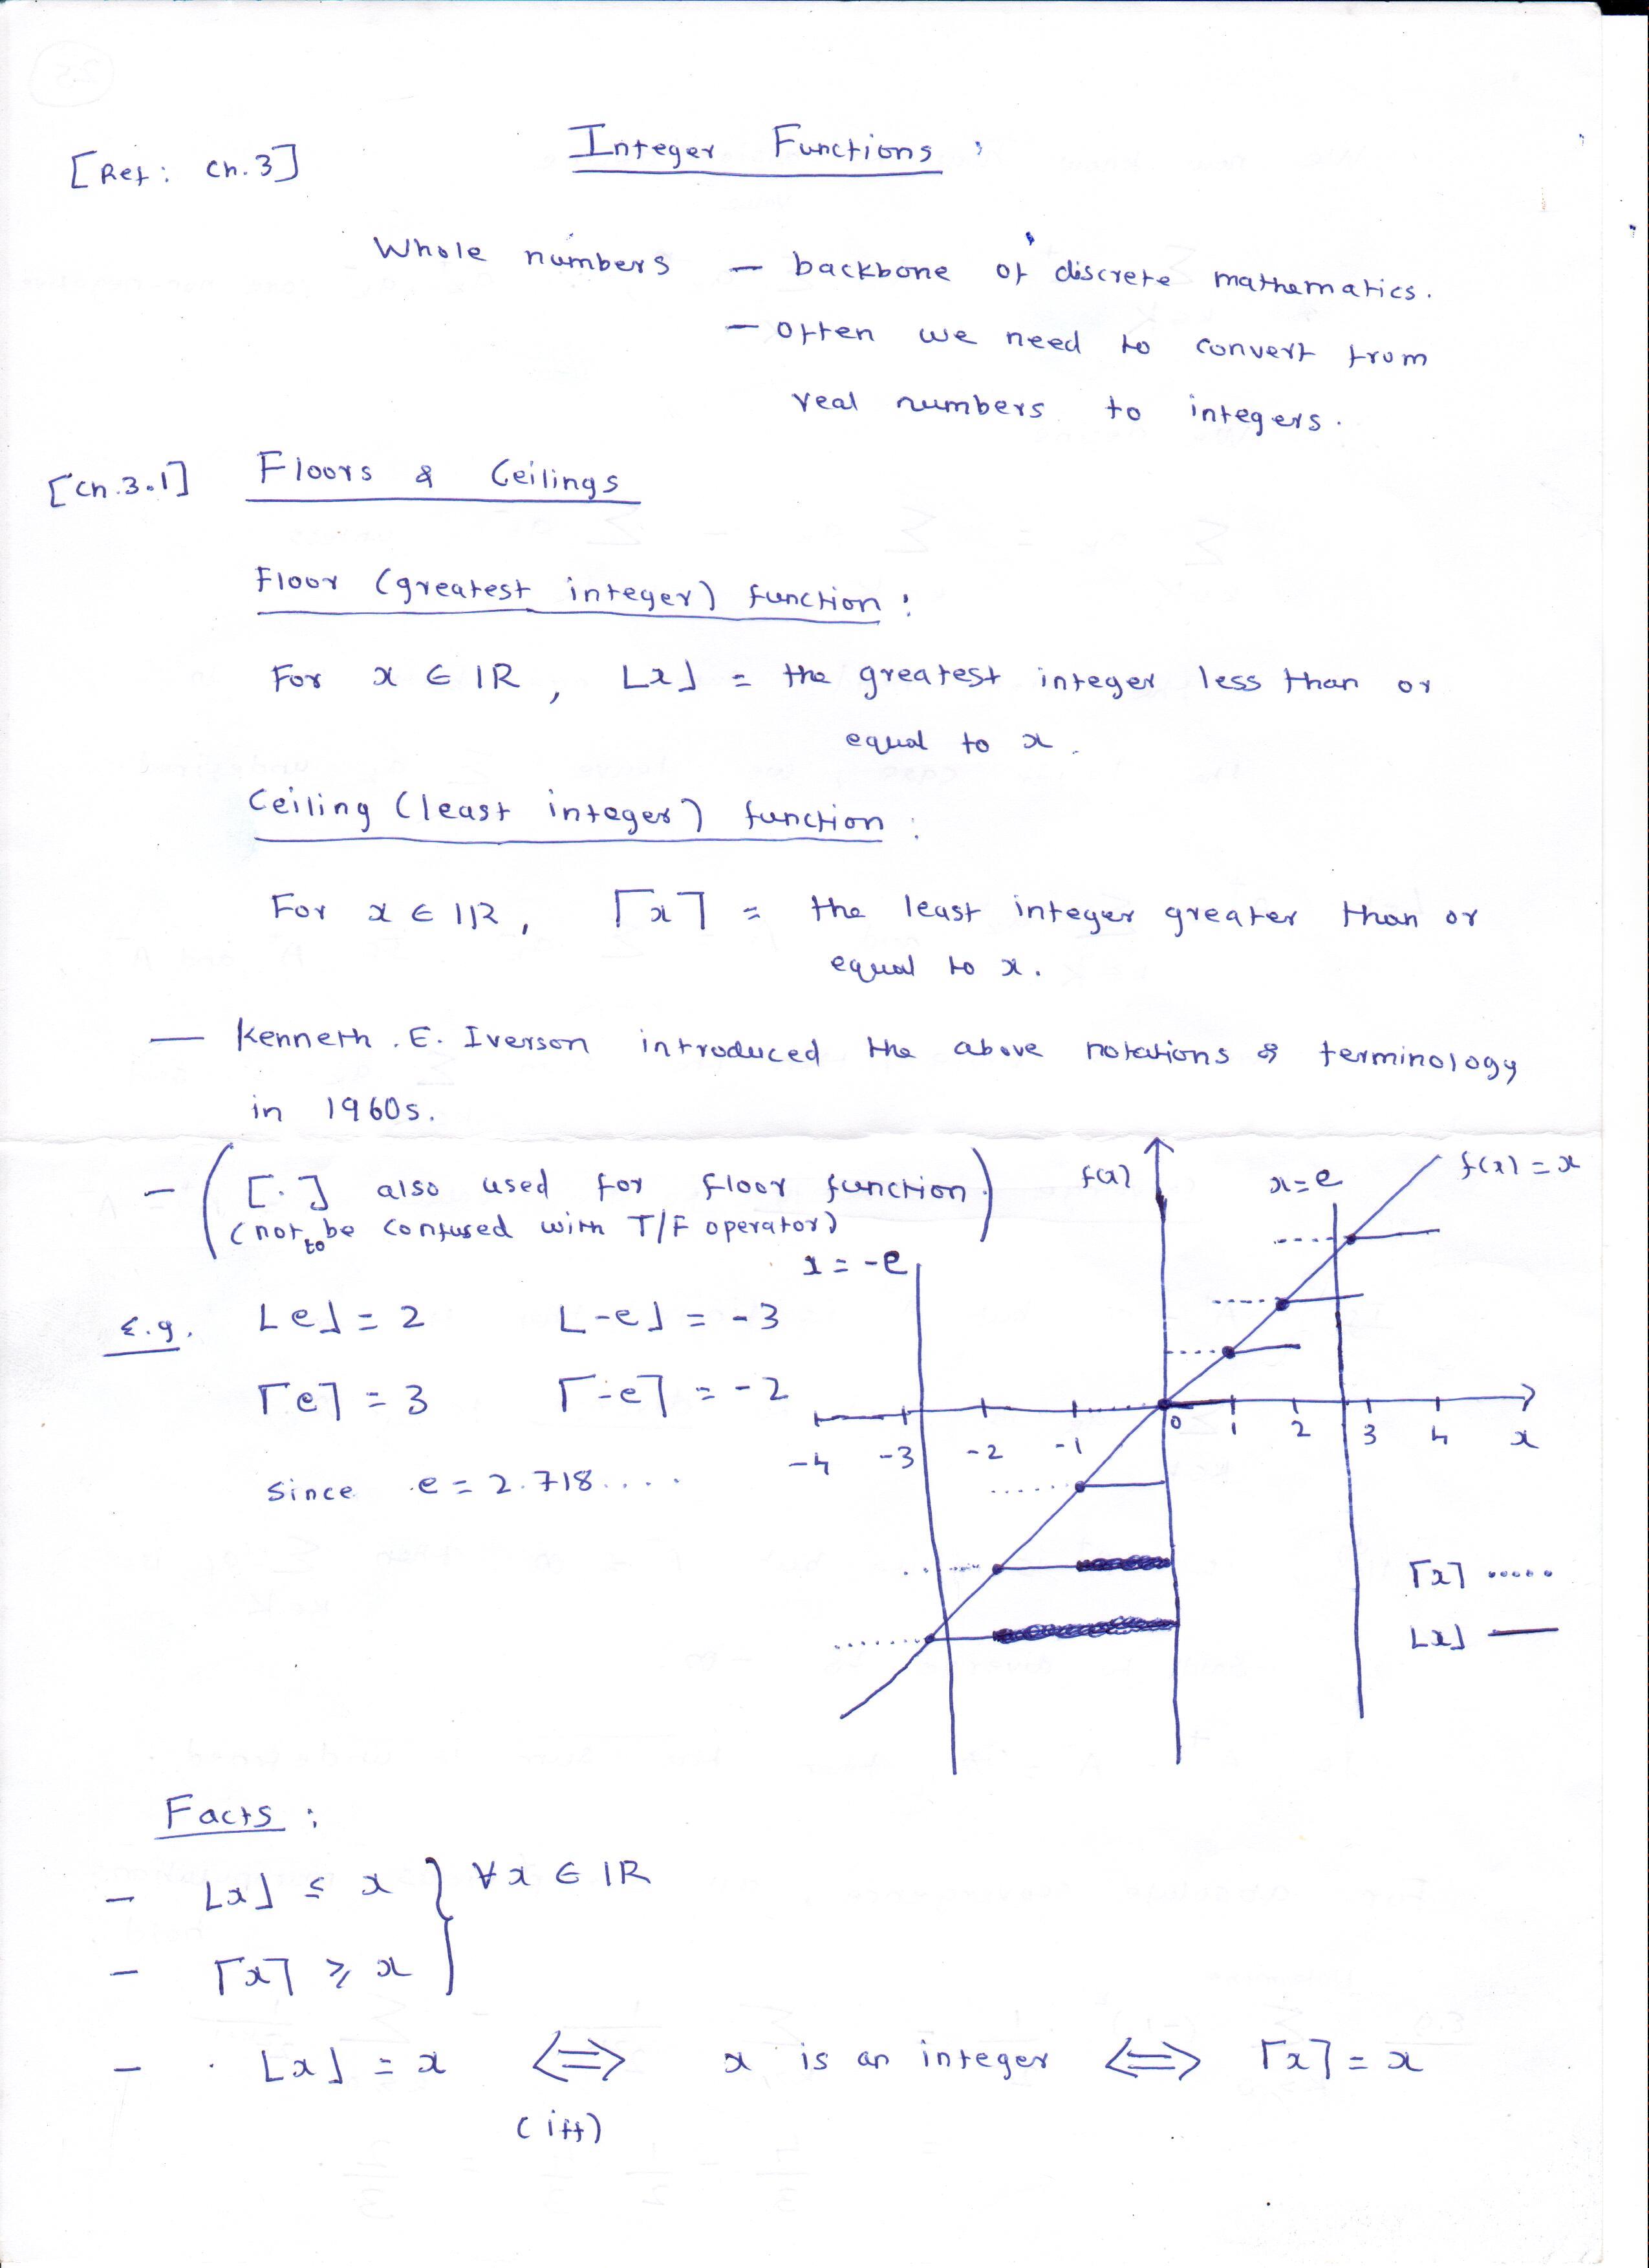 [Ref: Ch.3] Integer Functions :
Whole numbers — backbone of discrete mathematics.
— often we need to convert from
real numbers to integers.
[Ch.3.1] Floors & Ceilings
Floor (greatest integer) function :
For x ∈ ℝ, ⌊x⌋ = the greatest integer less than or
equal to x.
Ceiling (least integer) function :
For x ∈ ℝ, ⌈x⌉ = the least integer greater than or
equal to x.
— Kenneth . E. Iverson introduced the above notations & terminology
in 1960s.
— ( [.] also used for floor function.
(not to be confused with T/F operator) )
E.g. ⌊e⌋ = 2 ⌊-e⌋ = -3
⌈e⌉ = 3 ⌈-e⌉ = -2
since e = 2.718....
f(x)
x=e
f(x) = x
x = -e
-4 -3 -2 -1 0 1 2 3 4 x
⌈x⌉ .....
⌊x⌋ —
Facts :
— ⌊x⌋ ≤ x } ∀x ∈ ℝ
— ⌈x⌉ ≥ x
— ⌊x⌋ = x ⟺ x is an integer ⟺ ⌈x⌉ = x
(iff)